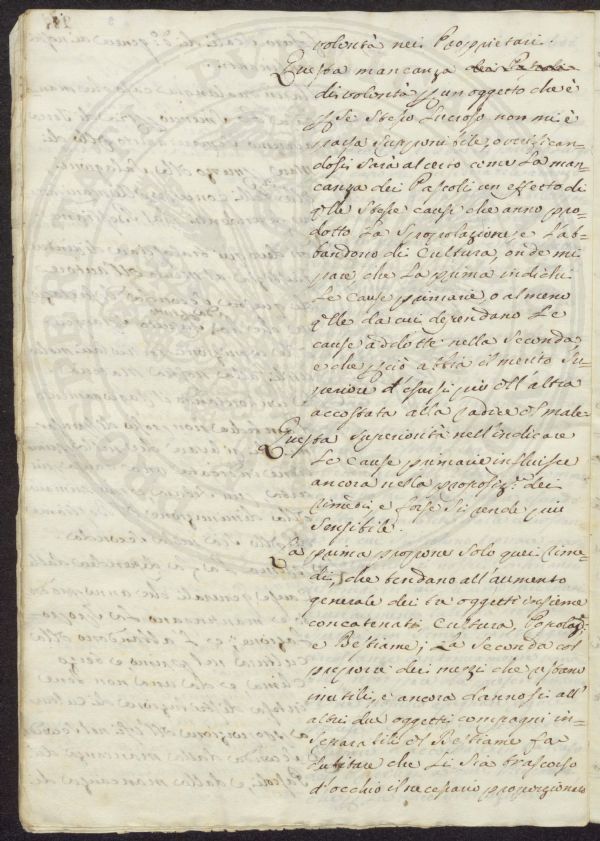 volontà nei Proprietari.
Questa mancanza dei Pascoli
di volontà p un oggetto che è
p se stesso lucroso non mi è
parsa supponibile, o verifican=
dosi sarà al certo come la man=
canza dei Pascoli un effetto di
qlle stesse cause che anno pro=
dotto la spopolazione, e l'ab=
bandono di Cultura, onde mi
pare che la prima indichi
le cause primarie, o almeno
qlle da cui dependano le
cause addotte nella seconda
e che pciò abbia il merito su=
periore d'essersi più dell'altra
accostata alla radice del male.
Questa superiorità nell'indicare
le cause primarie influisce
ancora nella proposiz.e dei
rimedi, e forse si rende più
sensibile.
La prima propone solo quei rime=
di, che tendano all'aumento
generale dei tre oggetti insieme
concatenati Cultura, Popolaz.e
e Bestiame; La seconda col
proporre dei mezzi che possono
inutili, e ancora dannosi all'
altri due oggetti compagni in=
separabili del Bestiame fa
dubitare che li sia trascorso
d'occhio il necessario proporzionato